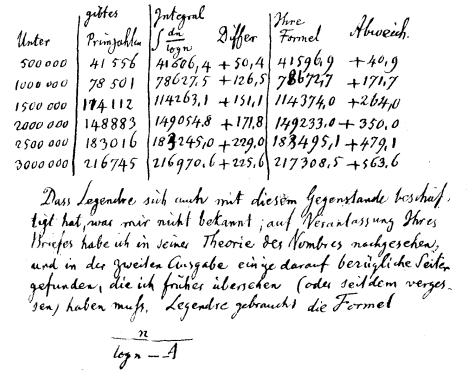 gibt es Integral Ihre
Unter Primzahlen ∫ dn/log n Differ Formel Abweich.
500000 41556 41606,4 + 50,4 41596,9 + 40,9
1000000 78501 78627,5 + 126,5 78672,7 + 171,7
1500000 114112 114263,1 + 151,1 114374,0 + 264,0
2000000 148883 149054,8 + 171,8 149233,0 + 350,0
2500000 183016 183245,0 + 229,0 183495,1 + 479,1
3000000 216745 216970,6 + 225,6 217308,5 + 563,6
Dass Legendre sich auch mit diesem Gegenstande beschäf-
tigt hat, war mir nicht bekannt; auf Veranlassung Ihres
Briefes habe ich in seiner Theorie des Nombres nachgesehen,
und in der zweiten Ausgabe einige darauf bezügliche Seiten
gefunden, die ich früher übersehen (oder seitdem verges-
sen) haben muß. Legendre gebraucht die Formel
n
log n – A